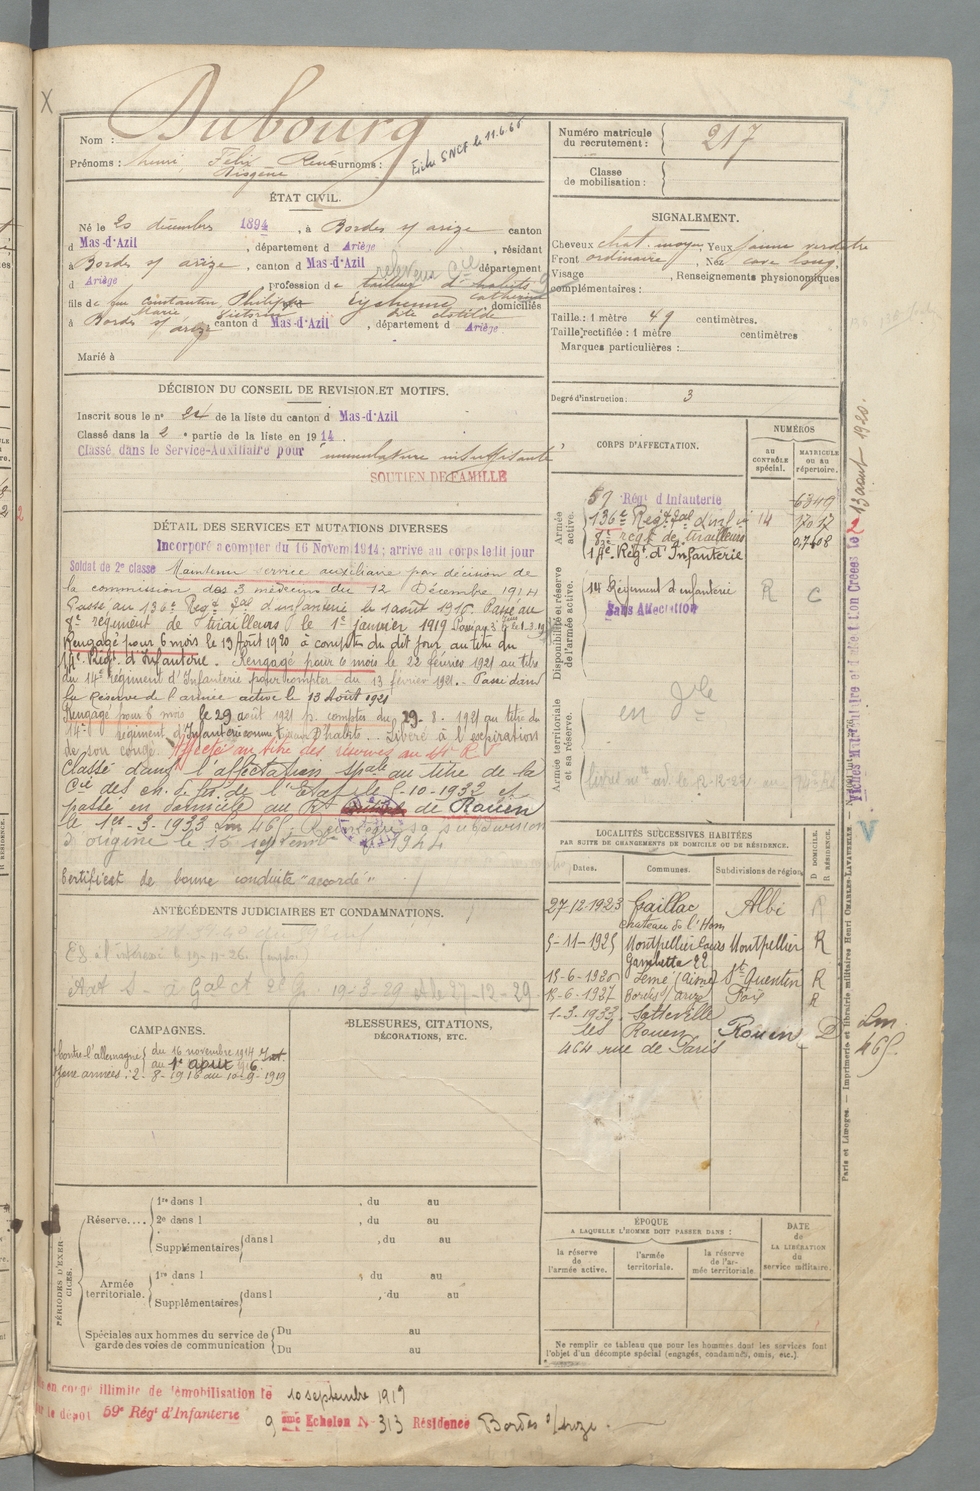 X
Nom : Dubourg
Prénoms : henri Félix René Surnoms :
Diogène
Fiche SNCF le 11.6.66
ÉTAT CIVIL.
Né le 20 décembre 1894, à Bordes s/ arize canton
d Mas-d'Azil, département d Ariège, résidant
à Bordes s/ arize, canton d Mas-d'Azil département
d Ariège, profession de tailleur d'habits
fils de feu Constantin Philippe et de Eychenne Catherine
Marie Victorine Clotilde domiciliés
à Bordes s/ arize canton d Mas-d'Azil, département d Ariège.
Marié à
DÉCISION DU CONSEIL DE REVISION ET MOTIFS.
Inscrit sous le n° 22 de la liste du canton d Mas-d'Azil
Classé dans la 2e partie de la liste en 1914.
Classé dans le Service-Auxiliaire pour musculature insuffisante
SOUTIEN DE FAMILLE
DÉTAIL DES SERVICES ET MUTATIONS DIVERSES
Incorporé a compter du 16 Novem. 1914; arrivé au corps ledit jour
Soldat de 2e classe Maintenu service auxiliaire par décision de
la commission des 3 médecins du 12 Décembre 1914
Passé au 136e Regt d'infanterie le 1 août 1916. Passé au
8e régiment de tirailleurs le 1er janvier 1919
Rengagé pour 6 mois le 13 Août 1920 à compter du dit jour au titre du
14e Régt d'Infanterie. Rengagé pour 6 mois le 22 février 1921 au titre
du 14e régiment d'Infanterie pour compter du 13 février 1921. - Passé dans
la Réserve de l'armée active le 13 Août 1921
Rengagé pour 6 mois le 29 août 1921 p. compter du 29-8-1921 au titre du
14e régiment d'Infanterie comme Tailleur d'habits. Libéré à l'expiration
de son congé. Affecté au titre des réserves au 14e R I
Classé dans l'affectation spale au titre de la
Cie des ch. de fer de l'Etat le 5-10-1932 et
passé en domicile au Rt de Rouen
le 1er-3-1933 Lm 465. Réintégré sa subdivision
d'origine le 15 septembre 1944
Certificat de bonne conduite "accordé"
ANTÉCÉDENTS JUDICIAIRES ET CONDAMNATIONS.
à l'intéressé le 19-11-26.
CAMPAGNES.
Contre l'allemagne du 16 novembre 1914
au 1er août 1916. Int
Zone armées : 2-8-1916 au 10-9-1919
BLESSURES, CITATIONS,
DÉCORATIONS, ETC.
PÉRIODES D'EXERCICES.
Réserve....
1re dans l , du au
2e dans l , du au
Supplémentaires dans l , du au
Armée territoriale.
1re dans l , du au
Supplémentaires dans l , du au
Spéciales aux hommes du service de
garde des voies de communication
Du au
Du au
en congé illimité de démobilisation le 10 septembre 1919
le dépôt 59e Régt d'Infanterie
9 ème Echelon N° 313 Résidence Bordes s/ arize.
Numéro matricule
du recrutement : 217
Classe
de mobilisation :
SIGNALEMENT.
Cheveux chat. moyen Yeux jaune verdâtre
Front ordinaire, Nez cave long.
Visage , Renseignements physionomiques
complémentaires :
Taille : 1 mètre 49 centimètres.
Taille rectifiée : 1 mètre centimètres
Marques particulières :
Degré d'instruction : 3
CORPS D'AFFECTATION.
NUMÉROS
au CONTRÔLE spécial.
MATRICULE ou au répertoire.
Armée active.
57 Régt d'Infanterie 6349
136e Regt d'infie 14 17017
8e regt de tirailleurs
14e Régt d'Infanterie
Disponibilité et réserve de l'armée active.
14 Régiment d'infanterie R C
Sans Affectation
Armée territoriale et sa réserve.
en Dle
LOCALITÉS SUCCESSIVES HABITÉES
PAR SUITE DE CHANGEMENTS DE DOMICILE OU DE RÉSIDENCE.
Dates. Communes. Subdivisions de région.
D DOMICILE. R RÉSIDENCE.
27-12-1923 Gaillac Albi R
chateau de l'Hom
5-11-1925 Montpellier Cours Montpellier R
Gambetta 22
15-6-1926 Semé (Aisne) St Quentin R
12-6-1927 Bordes s/ arize Foix R
1-3-1933 Sotteville
les Rouen Rouen D
464 rue de Paris
Lm
465.
V
ÉPOQUE
A LAQUELLE L'HOMME DOIT PASSER DANS :
la réserve de l'armée active.
l'armée territoriale.
la réserve de l'armée territoriale.
DATE de LA LIBÉRATION du service militaire.
Ne remplir ce tableau que pour les hommes dont les services font
l'objet d'un décompte spécial (engagés, condamnés, omis, etc.).
Paris et Limoges. — Imprimerie et librairie militaires Henri CHARLES-LAVAUZELLE.
13 aout 1920.